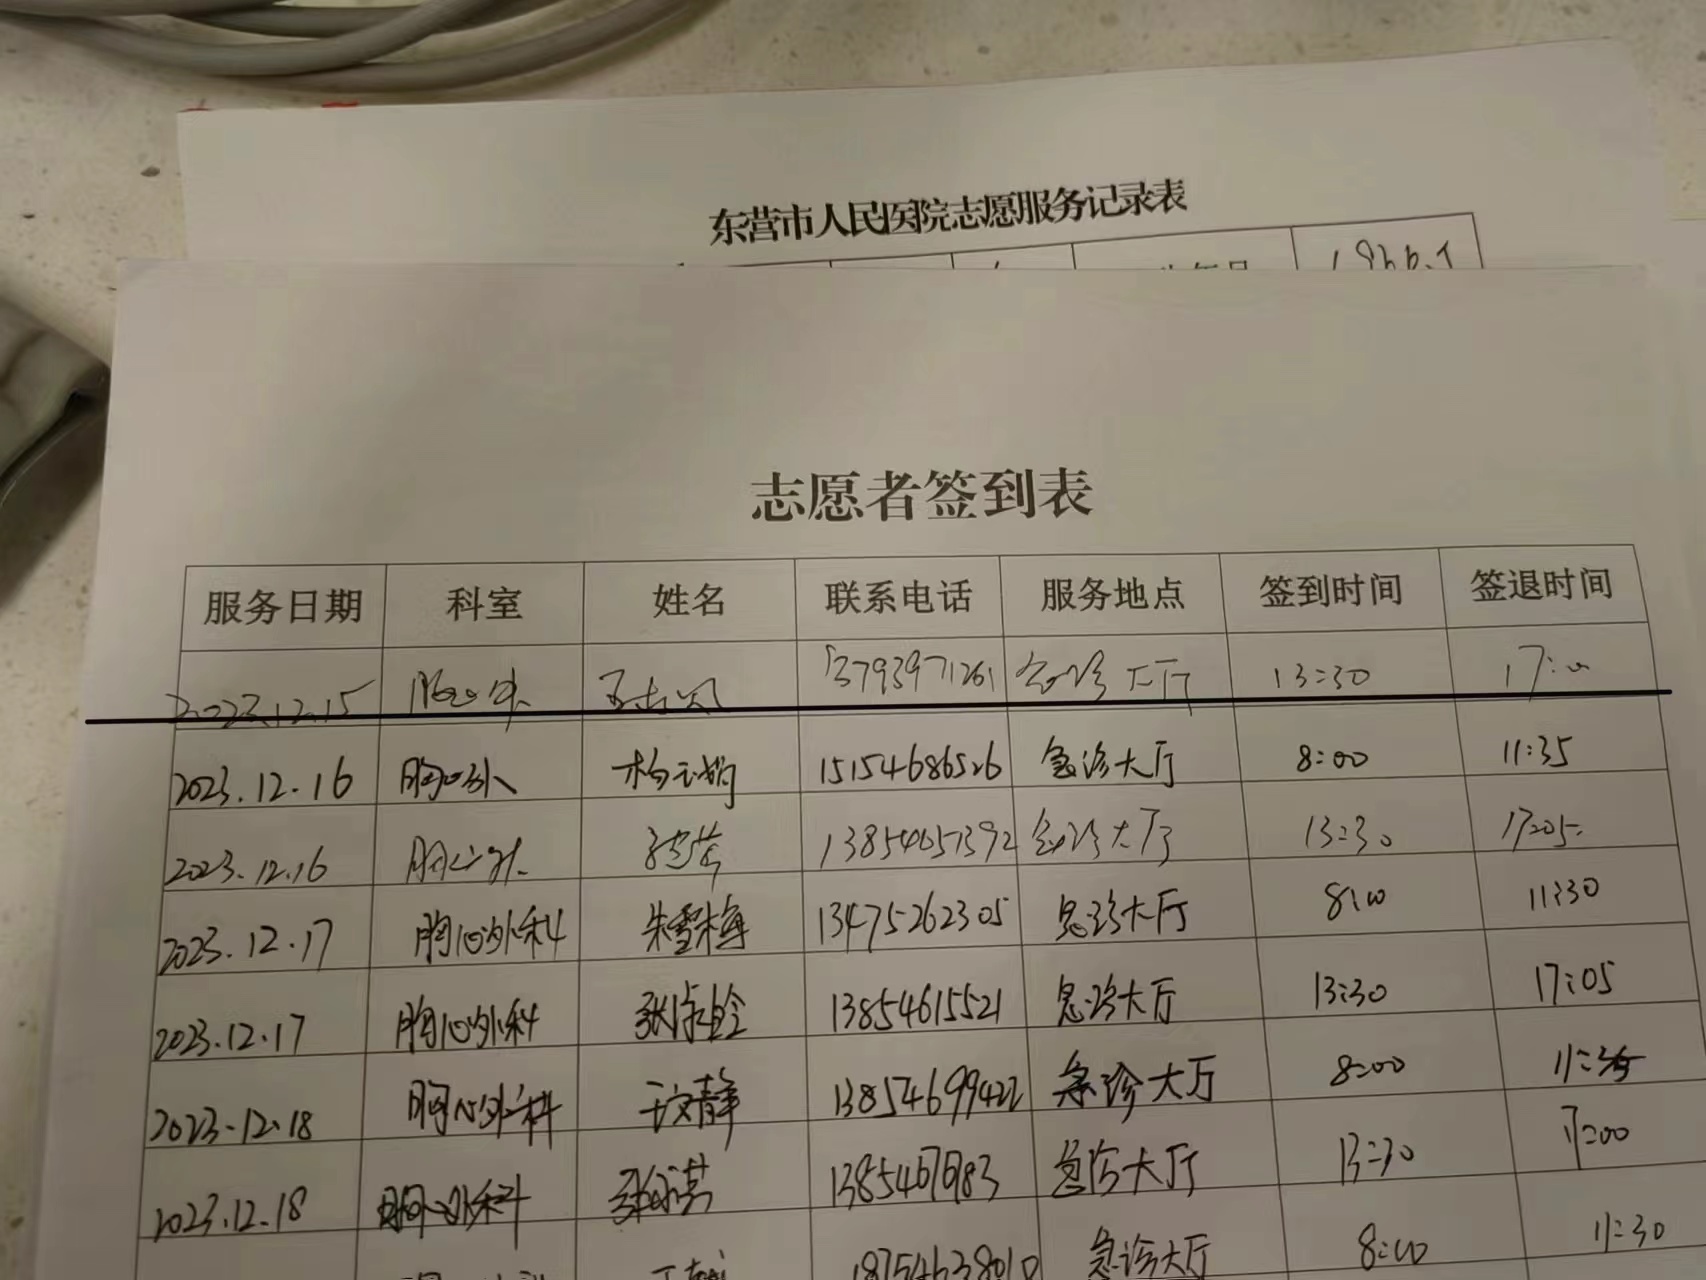 东营市人民医院志愿服务记录表
志愿者签到表
服务日期 科室 姓名 联系电话 服务地点 签到时间 签退时间
2023.12.15 胸心外 13793971261 急诊大厅 13:30 17:00
2023.12.16 胸心外 杨玉娟 15154686526 急诊大厅 8:00 11:35
2023.12.16 胸心外 13854651392 急诊大厅 13:30 17:05
2023.12.17 胸心外科 朱雪梅 13475262305 急诊大厅 8:00 11:30
2023.12.17 胸心外科 13854615521 急诊大厅 13:30 17:05
2023.12.18 胸心外科 文静 13854699422 急诊大厅 8:00 11:35
2023.12.18 胸心外科 急诊大厅 13:30 17:00
18754638010 急诊大厅 8:00 11:30